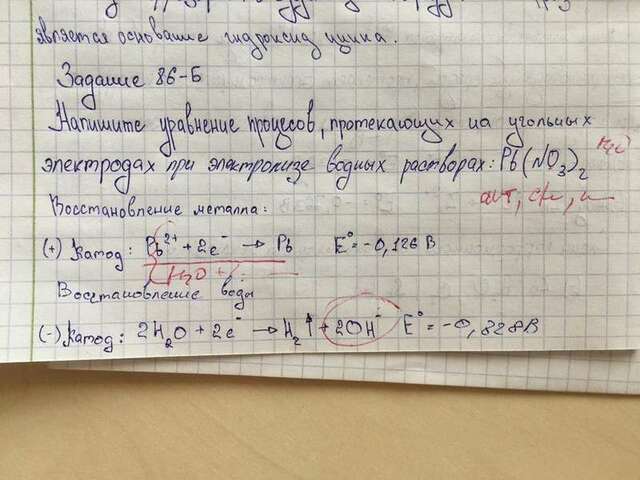 является основание гидроксид цинка.
Задание 86-Б
Напишите уравнение процесов, протекающих на угольных
электродах при электролизе водных растворах: Pb(NO₃)₂
Восстановление металла:
(+) Катод: Pb²⁺ + 2e⁻ → Pb E° = -0,126 В
H₂O +
Восстановление воды
(-) Катод: 2H₂O + 2e⁻ → H₂↑ + 2OH⁻ E° = -0,828В